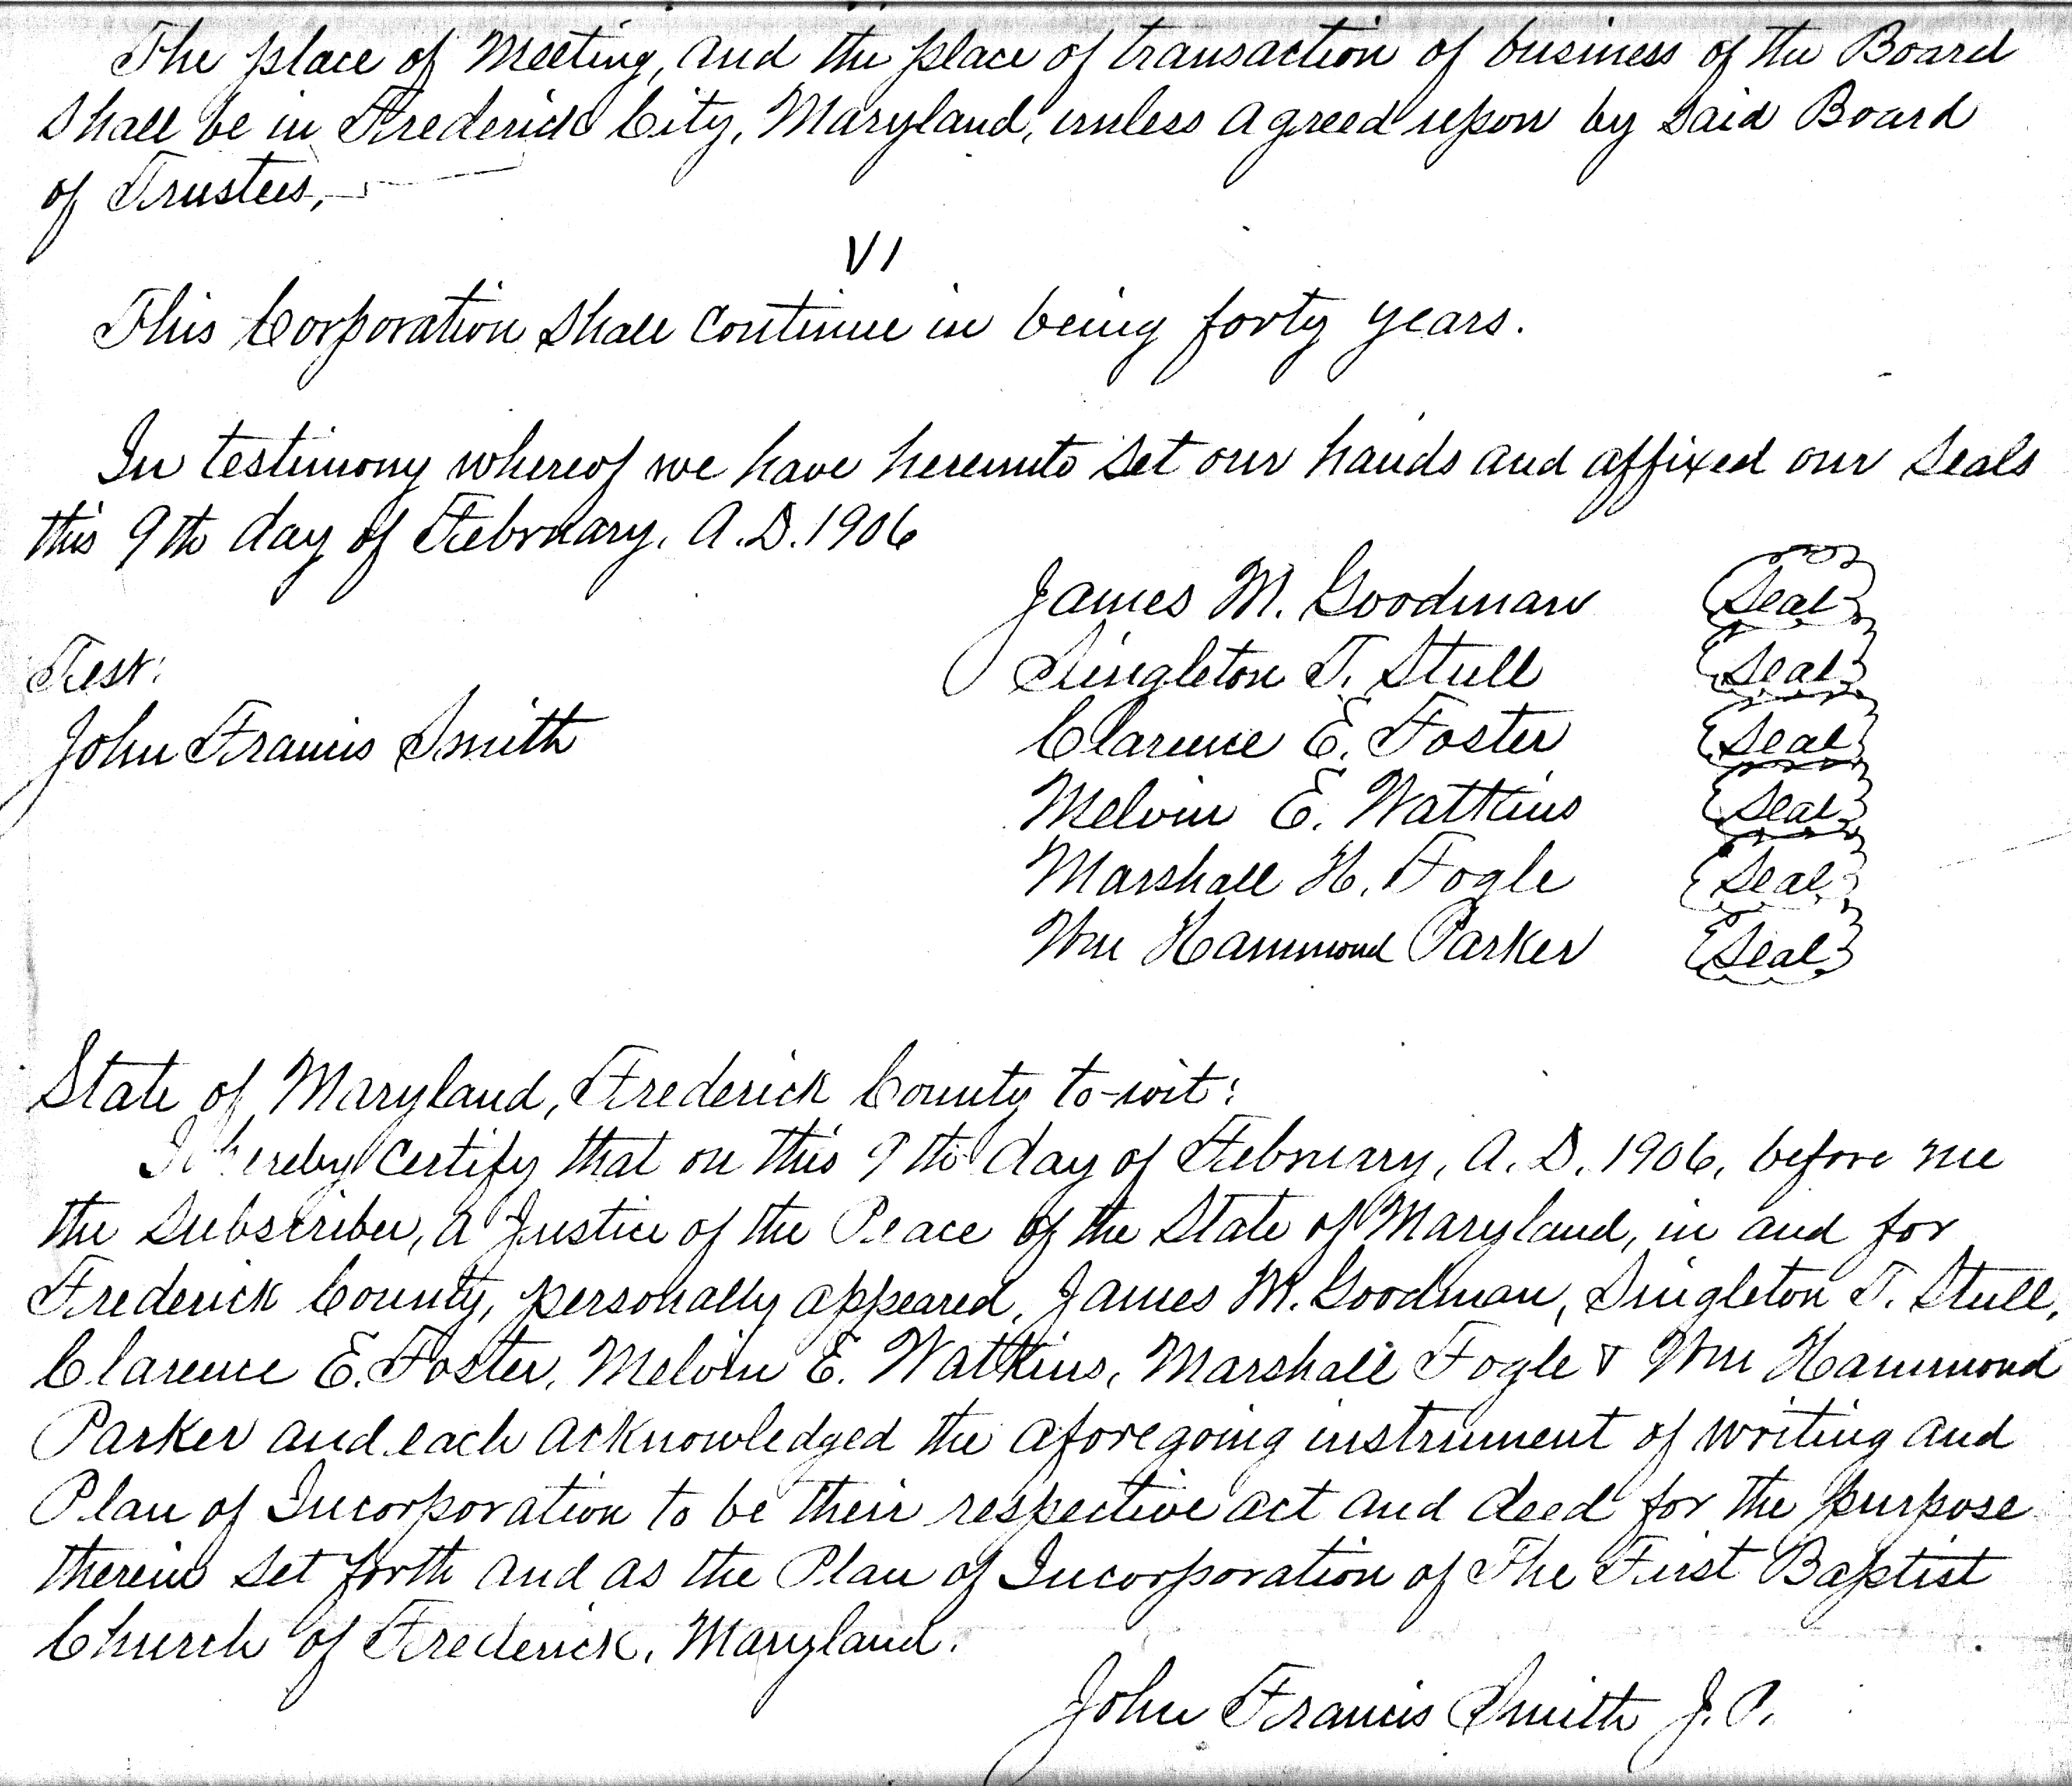 The place of Meeting, and the place of transaction of business of the Board
shall be in Frederick City, Maryland, unless agreed upon by said Board
of Trustees,
VI
This Corporation shall continue in being forty years.
In testimony whereof we have hereunto set our hands and affixed our seals
this 9th day of February, A.D. 1906
James M. Goodman Seal
Test: Singleton T. Stull Seal
John Francis Smith Clarence E. Foster Seal
Melvin E. Wattkins Seal
Marshall H. Fogle Seal
Wm Hammond Parker Seal
State of Maryland, Frederick County to-wit:
I hereby certify that on this 9th day of February, A.D. 1906, before me
the Subscriber, a Justice of the Peace of the State of Maryland, in and for
Frederick County, personally appeared, James M. Goodman, Singleton T. Stull,
Clarence E. Foster, Melvin E. Wattkins, Marshall Fogle & Wm Hammond
Parker and each acknowledged the aforegoing instrument of writing and
Plan of Incorporation to be their respective act and deed for the purpose
therein set forth and as the Plan of Incorporation of The First Baptist
Church of Frederick, Maryland.
John Francis Smith J.P.